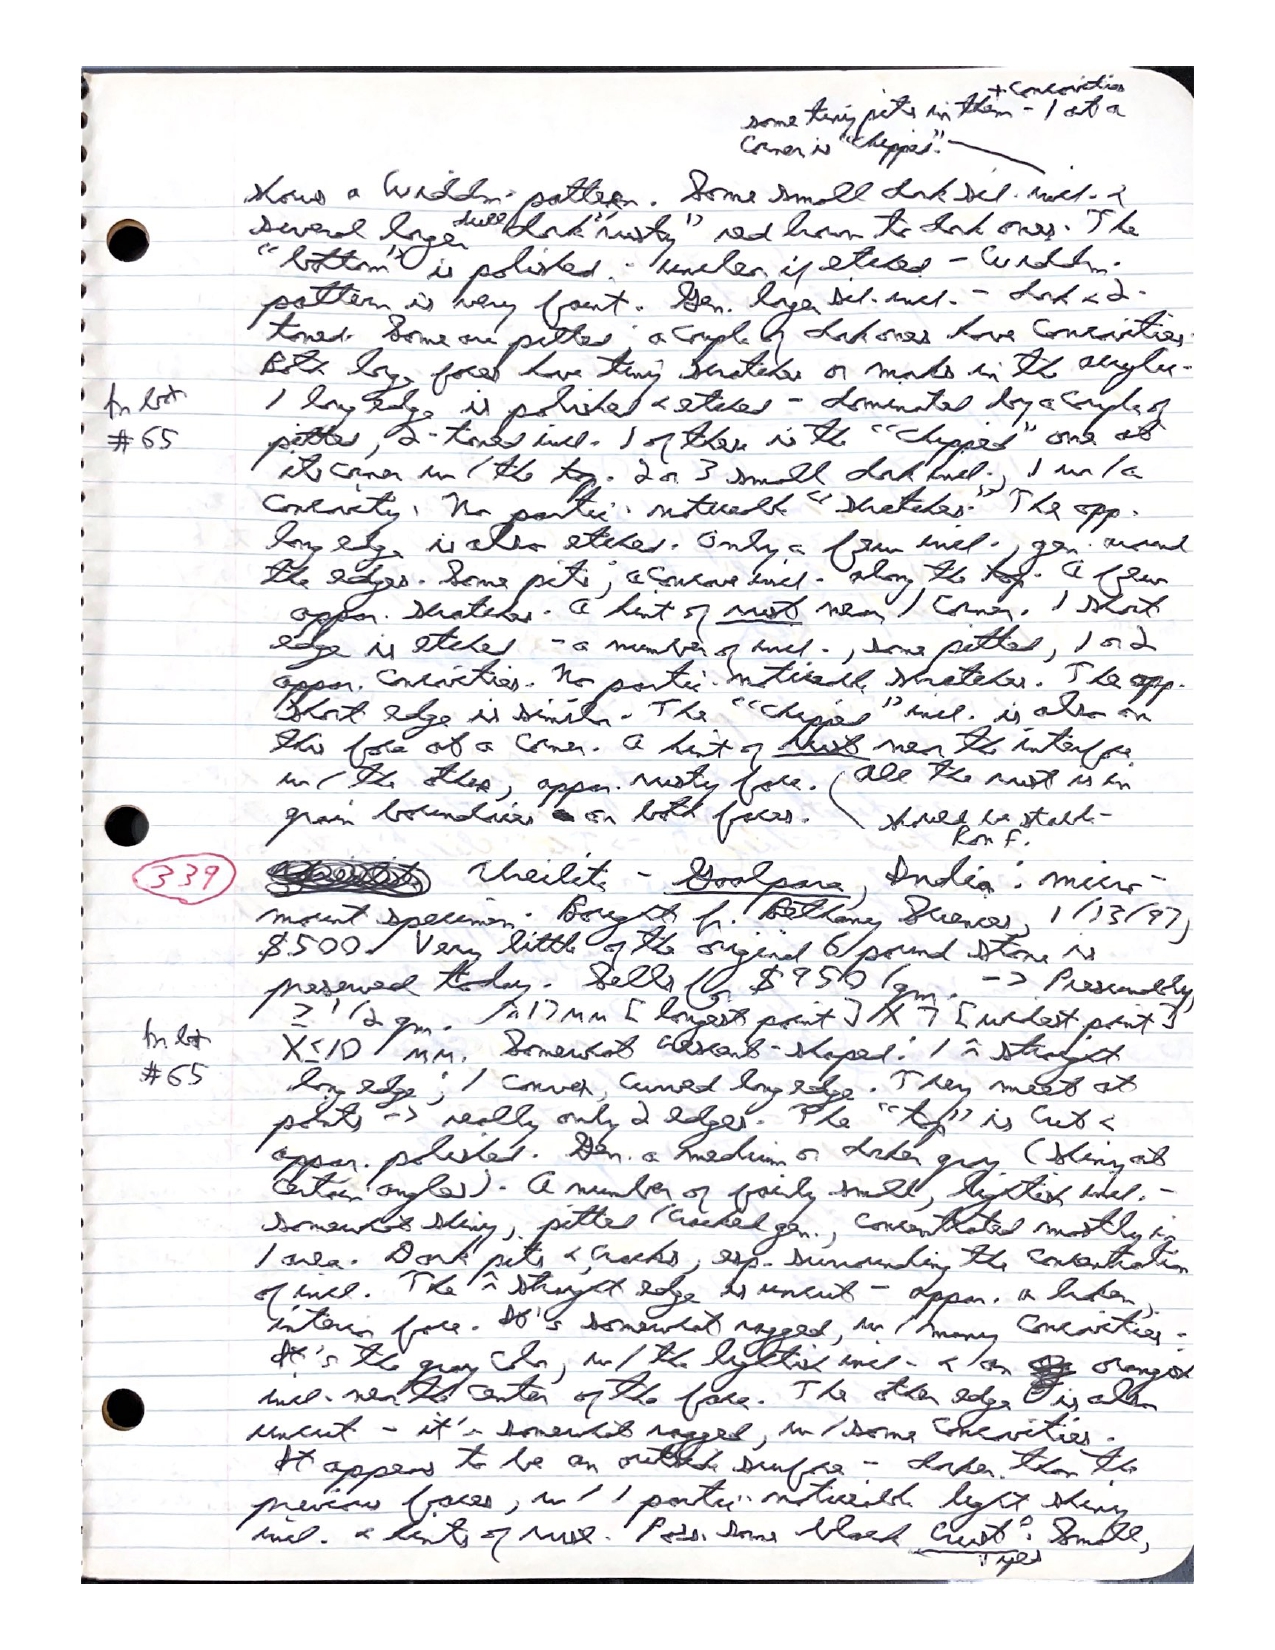 + concavities
some tiny pits in them - 1 at a
corner is "chipped".
shows a Widdm. pattern. Some small dark sil. incl. &
several larger dull dark "rusty" red brown to dark ones. The
"bottom" is polished - unclear if etched - Widdm.
pattern is very faint. Gen. larger sil. incl. - dark & 2-
toned. Some are pitted; a couple of dark ones have concavities.
Both large faces have tiny scratches or marks in the
In lot
#65
1 long edge is polished & etched - dominated by a couple of
pitted, 2-toned incl. 1 of these is the "chipped" one at
its corner w/ the top. 2 or 3 small dark incl., 1 w/ a
concavity. No partic. noticeable "scratches." The opp.
long edge is also etched. Only a few incl., gen. around
the edges. Some pits; a concave incl. along the top. A few
appar. scratches. A hint of rust near 1 corner. 1 short
edge is etched - a number of incl., some pitted, 1 or 2
appar. concavities. No partic. noticeable scratches. The opp.
short edge is similar. The "chipped" incl. is also on
this face at a corner. A hint of rust near the interface
w/ the other, appar. rusty face. (All the rust is in
grain boundaries on both faces. should be stable -
Ron F.
339
Ureilite - Goalpara, India: micro-
mount specimen. Bought fr. Bethany Sciences, 1/13/97,
$500. Very little of the original 6 pound stone is
preserved today. Sells for $950/gm. -> Presumably
≥ 1/2 gm. ≈17 mm [longest point] X 7 [widest point]
In lot
#65
X ≤10 mm. Somewhat crescent-shaped: 1 ≈ straight
long edge; 1 convex, curved long edge. They meet at
points -> really only 2 edges. The "top" is cut &
appar. polished. Gen. a medium or darker gray (shiny at
certain angles). A number of fairly small, lightish incl. -
somewhat shiny, pitted/cracked gen., concentrated mostly in
1 area. Dark pits & cracks, esp. surrounding the concentration
of incl. The ≈ straight edge is uncut - appar. a broken,
interior face. It's somewhat ragged, w/ many concavities.
It's the gray color, w/ the lightish incl. & an orangish
incl. near the center of the face. The other edge is also
uncut - it's somewhat ragged, w/ some concavities.
It appears to be an outside surface - darker than the
previous faces, w/ 1 partic. noticeable light shiny
incl. & hints of rust. Poss. some black crust: Small,
: yes